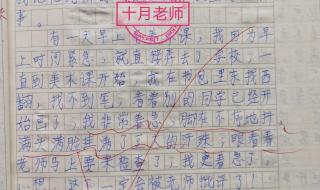 事。
十月老师
有一天早上 课,我因为早
上时间紧急,就直 奔去了学校,一
直到美术课开始 我在书包里东找西
翻,找不到 看着别的同学已经开
始画了,我非常着急,脚在不停地抖,
满头满脸 满了 大的汗珠,眼看着
老师马上要来检查了,我更着急了,
心想: 一定会被老师批评了!